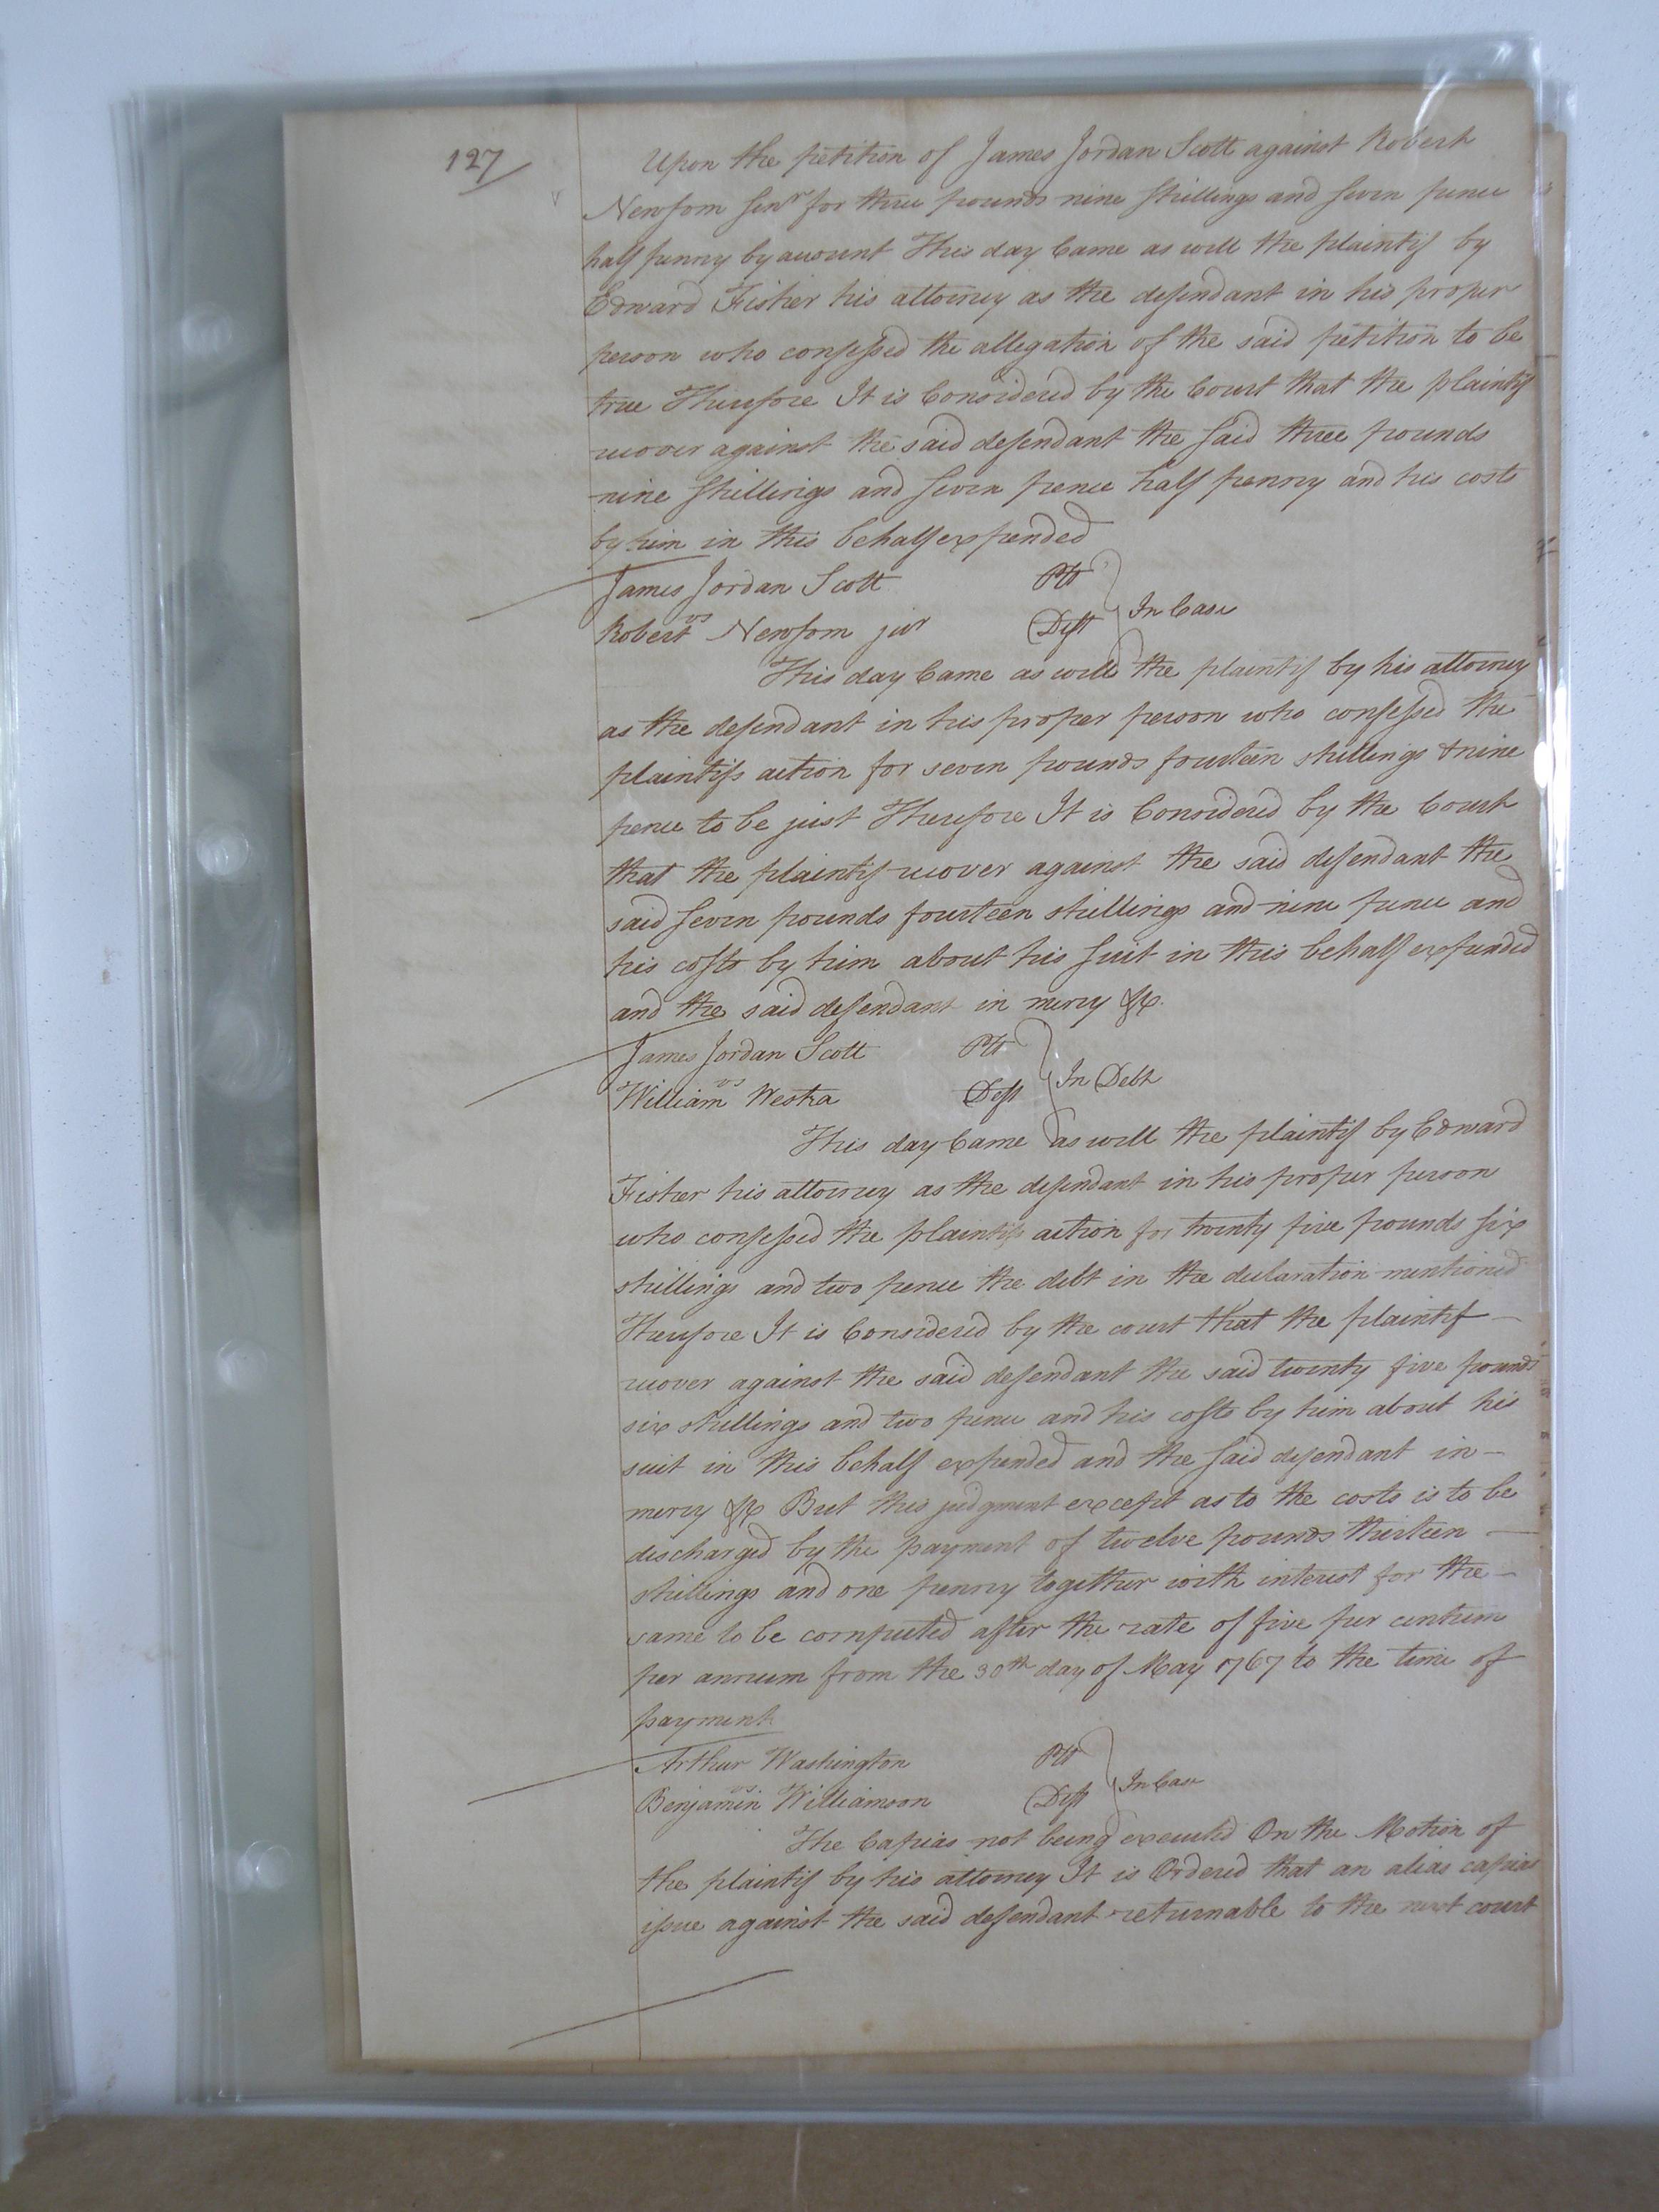 127
Upon the petition of James Jordan Scott against Robert
Newsom senr for three pounds nine shillings and seven pence
half penny by account This day Came as well the plaintif by
Edward Fisher his attorney as the defendant in his proper
person who confessed the allegation of the said petition to be
true Therefore It is Considered by the Court that the plaintif
recover against the said defendant the said three pounds
nine shillings and seven pence half penny and his costs
by him in this behalf expended
James Jordan Scott Plt
vs In Case
Robert Newsom junr Deft
This day Came as well the plaintif by his attorney
as the defendant in his proper person who confessed the
plaintifs action for seven pounds fourteen shillings & nine
pence to be just Therefore It is Considered by the Court
that the plaintif recover against the said defendant the
said seven pounds fourteen shillings and nine pence and
his costs by him about his suit in this behalf expended
and the said defendant in mercy &c.
James Jordan Scott Plt
vs In Debt
William Westra Deft
This day Came as well the plaintif by Edward
Fisher his attorney as the defendant in his proper person
who confessed the plaintifs action for twenty five pounds six
shillings and two pence the debt in the declaration mentioned
Therefore It is Considered by the court that the plaintif
recover against the said defendant the said twenty five pounds
six shillings and two pence and his costs by him about his
suit in this behalf expended and the said defendant in
mercy &c But this judgment except as to the costs is to be
discharged by the payment of twelve pounds thirteen
shillings and one penny together with interest for the
same to be computed after the rate of five per centum
per annum from the 30th day of May 1767 to the time of
payment
Arthur Washington Plt
vs In Case
Benjamin Williamson Deft
The Capias not being executed On the Motion of
the plaintif by his attorney It is Ordered that an alias capias
issue against the said defendant returnable to the next court